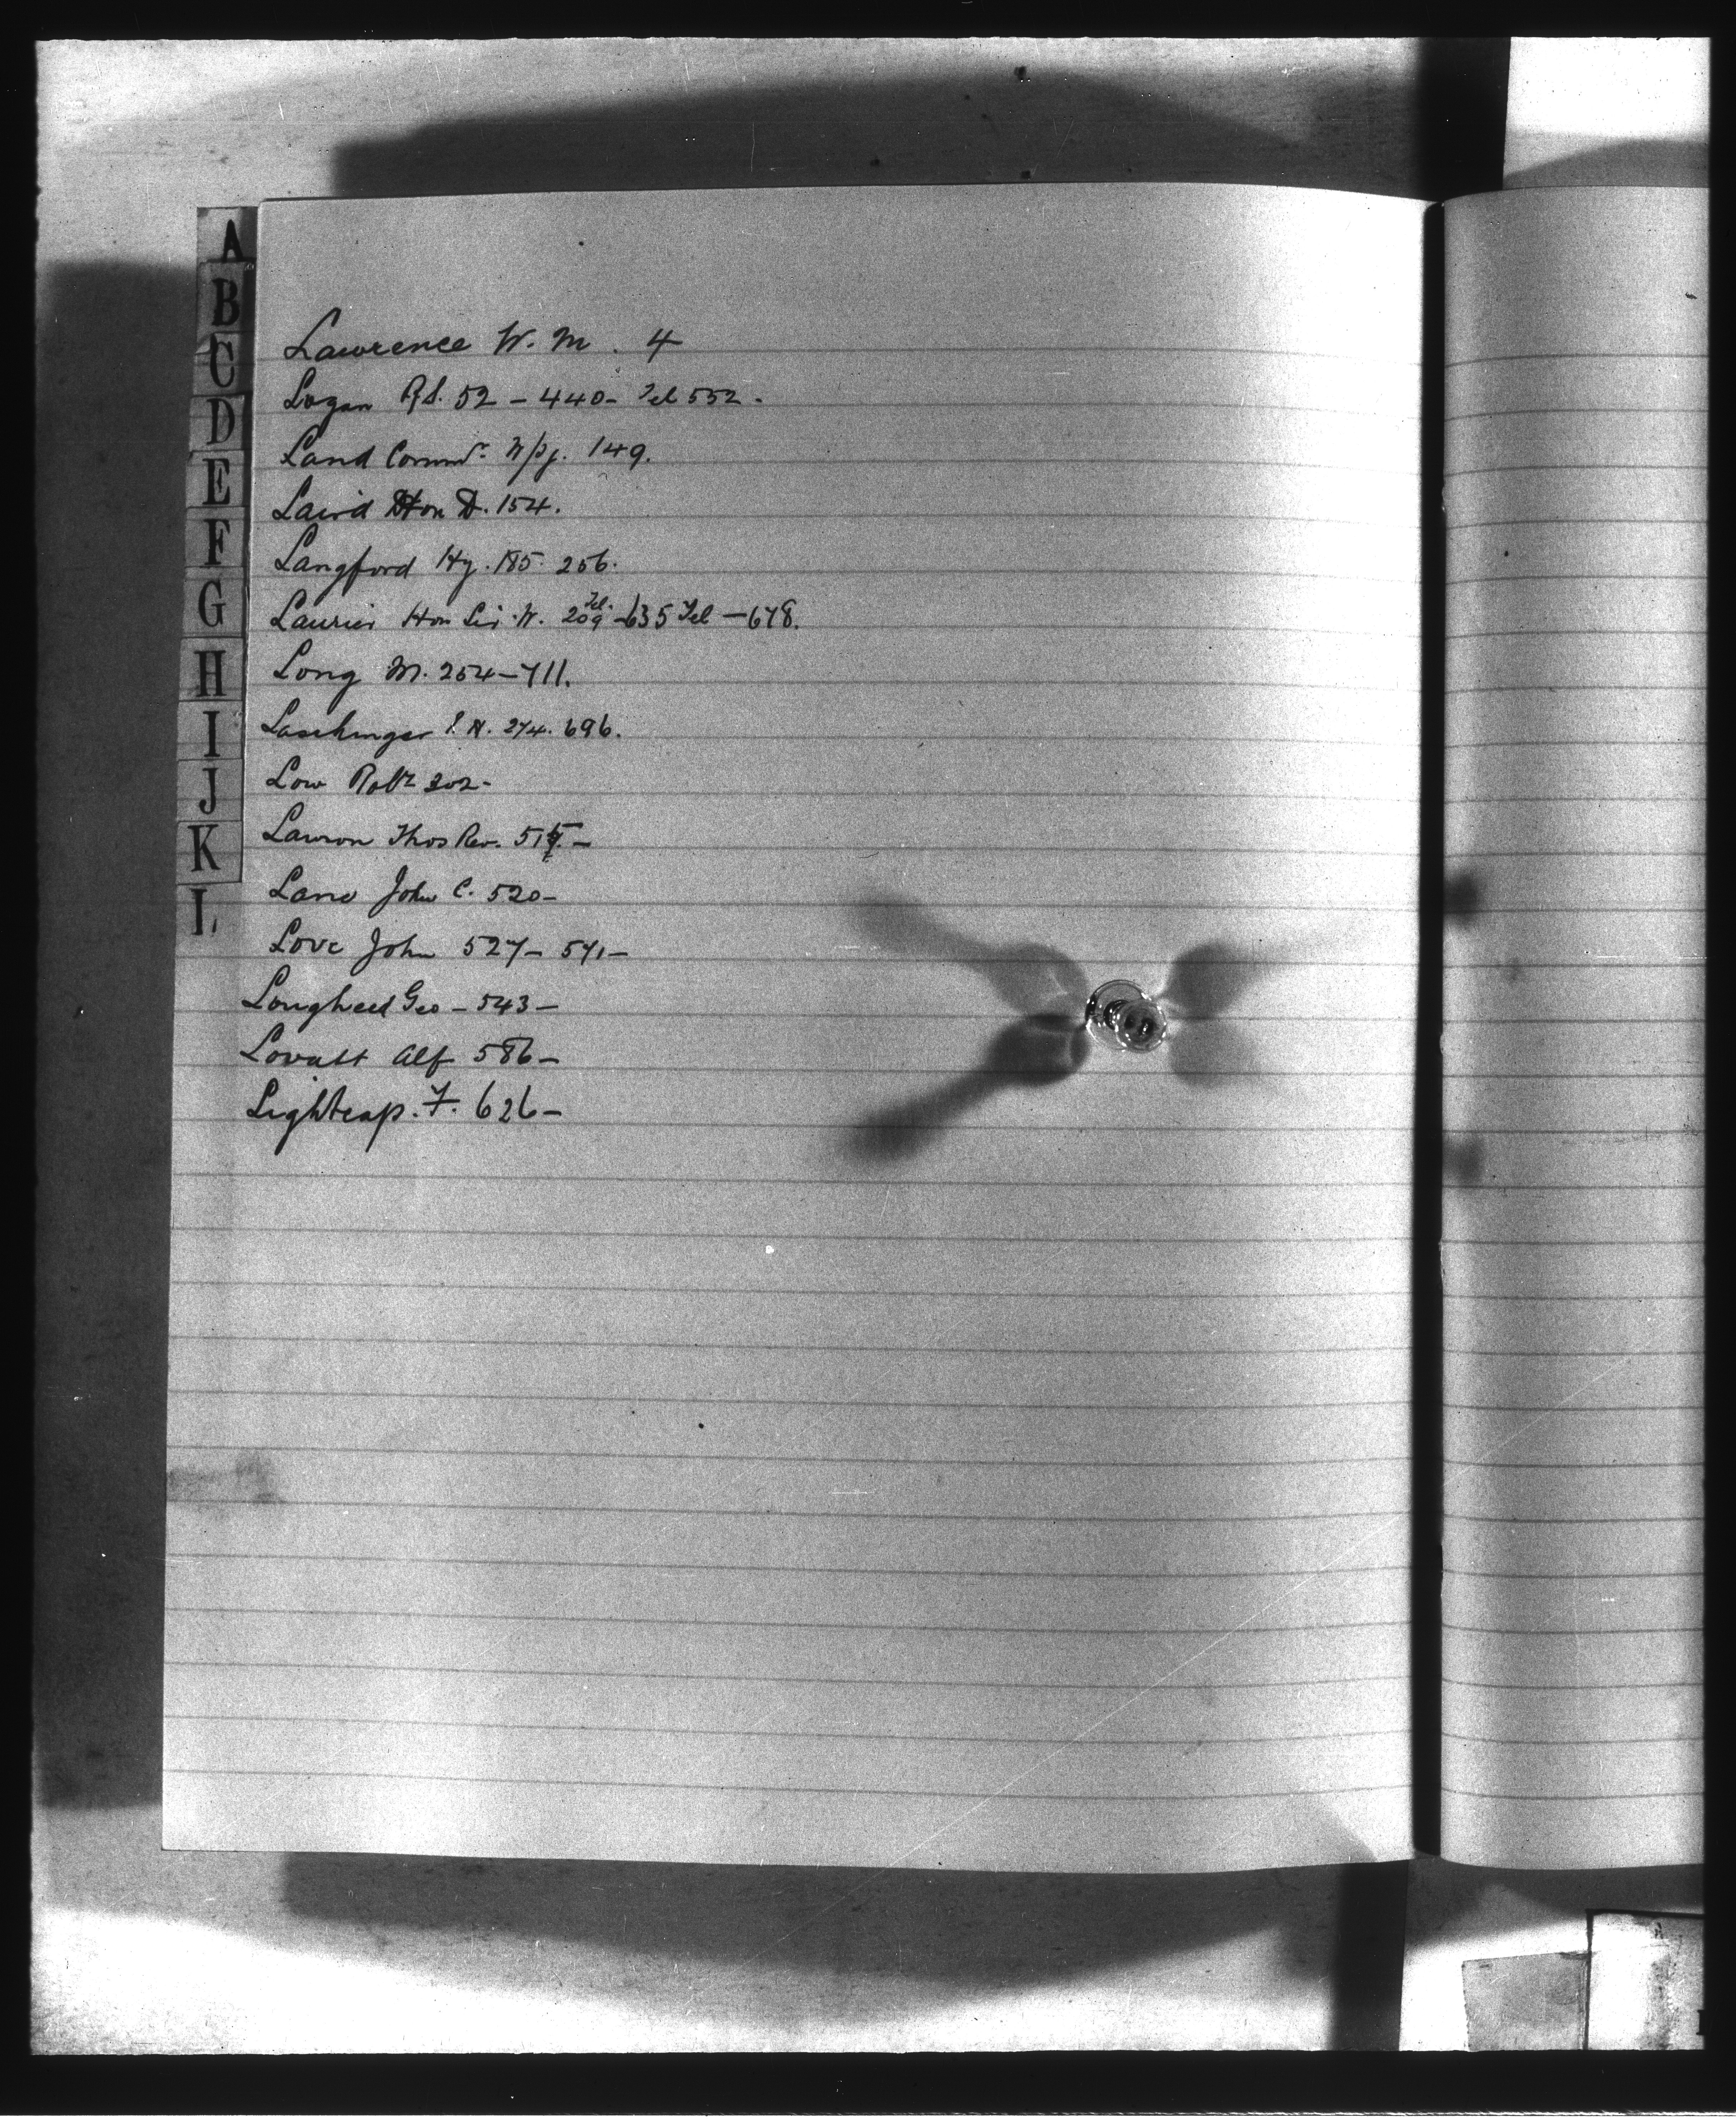 A
B
C
D
E
F
G
H
I
J
K
L
Lawrence W. M. 4
Logan Rd. 52 - 440 - Tel 552 -
Land Commr. Wpg. 149.
Laird Hon D. 154.
Langford Hy. 185. 256.
Laurier Hon Sir W. 209 Tel. - 635 Tel - 678.
Long M. 254 - 711.
Laschinger N. 274. 696.
Low Robt 302 -
Lawson Thos Rev. -
Lane John C. 520 -
Love John 527 - 571 -
Longheed Geo - 543 -
Lovatt Alf 586 -
Lightcap. F. 626 -